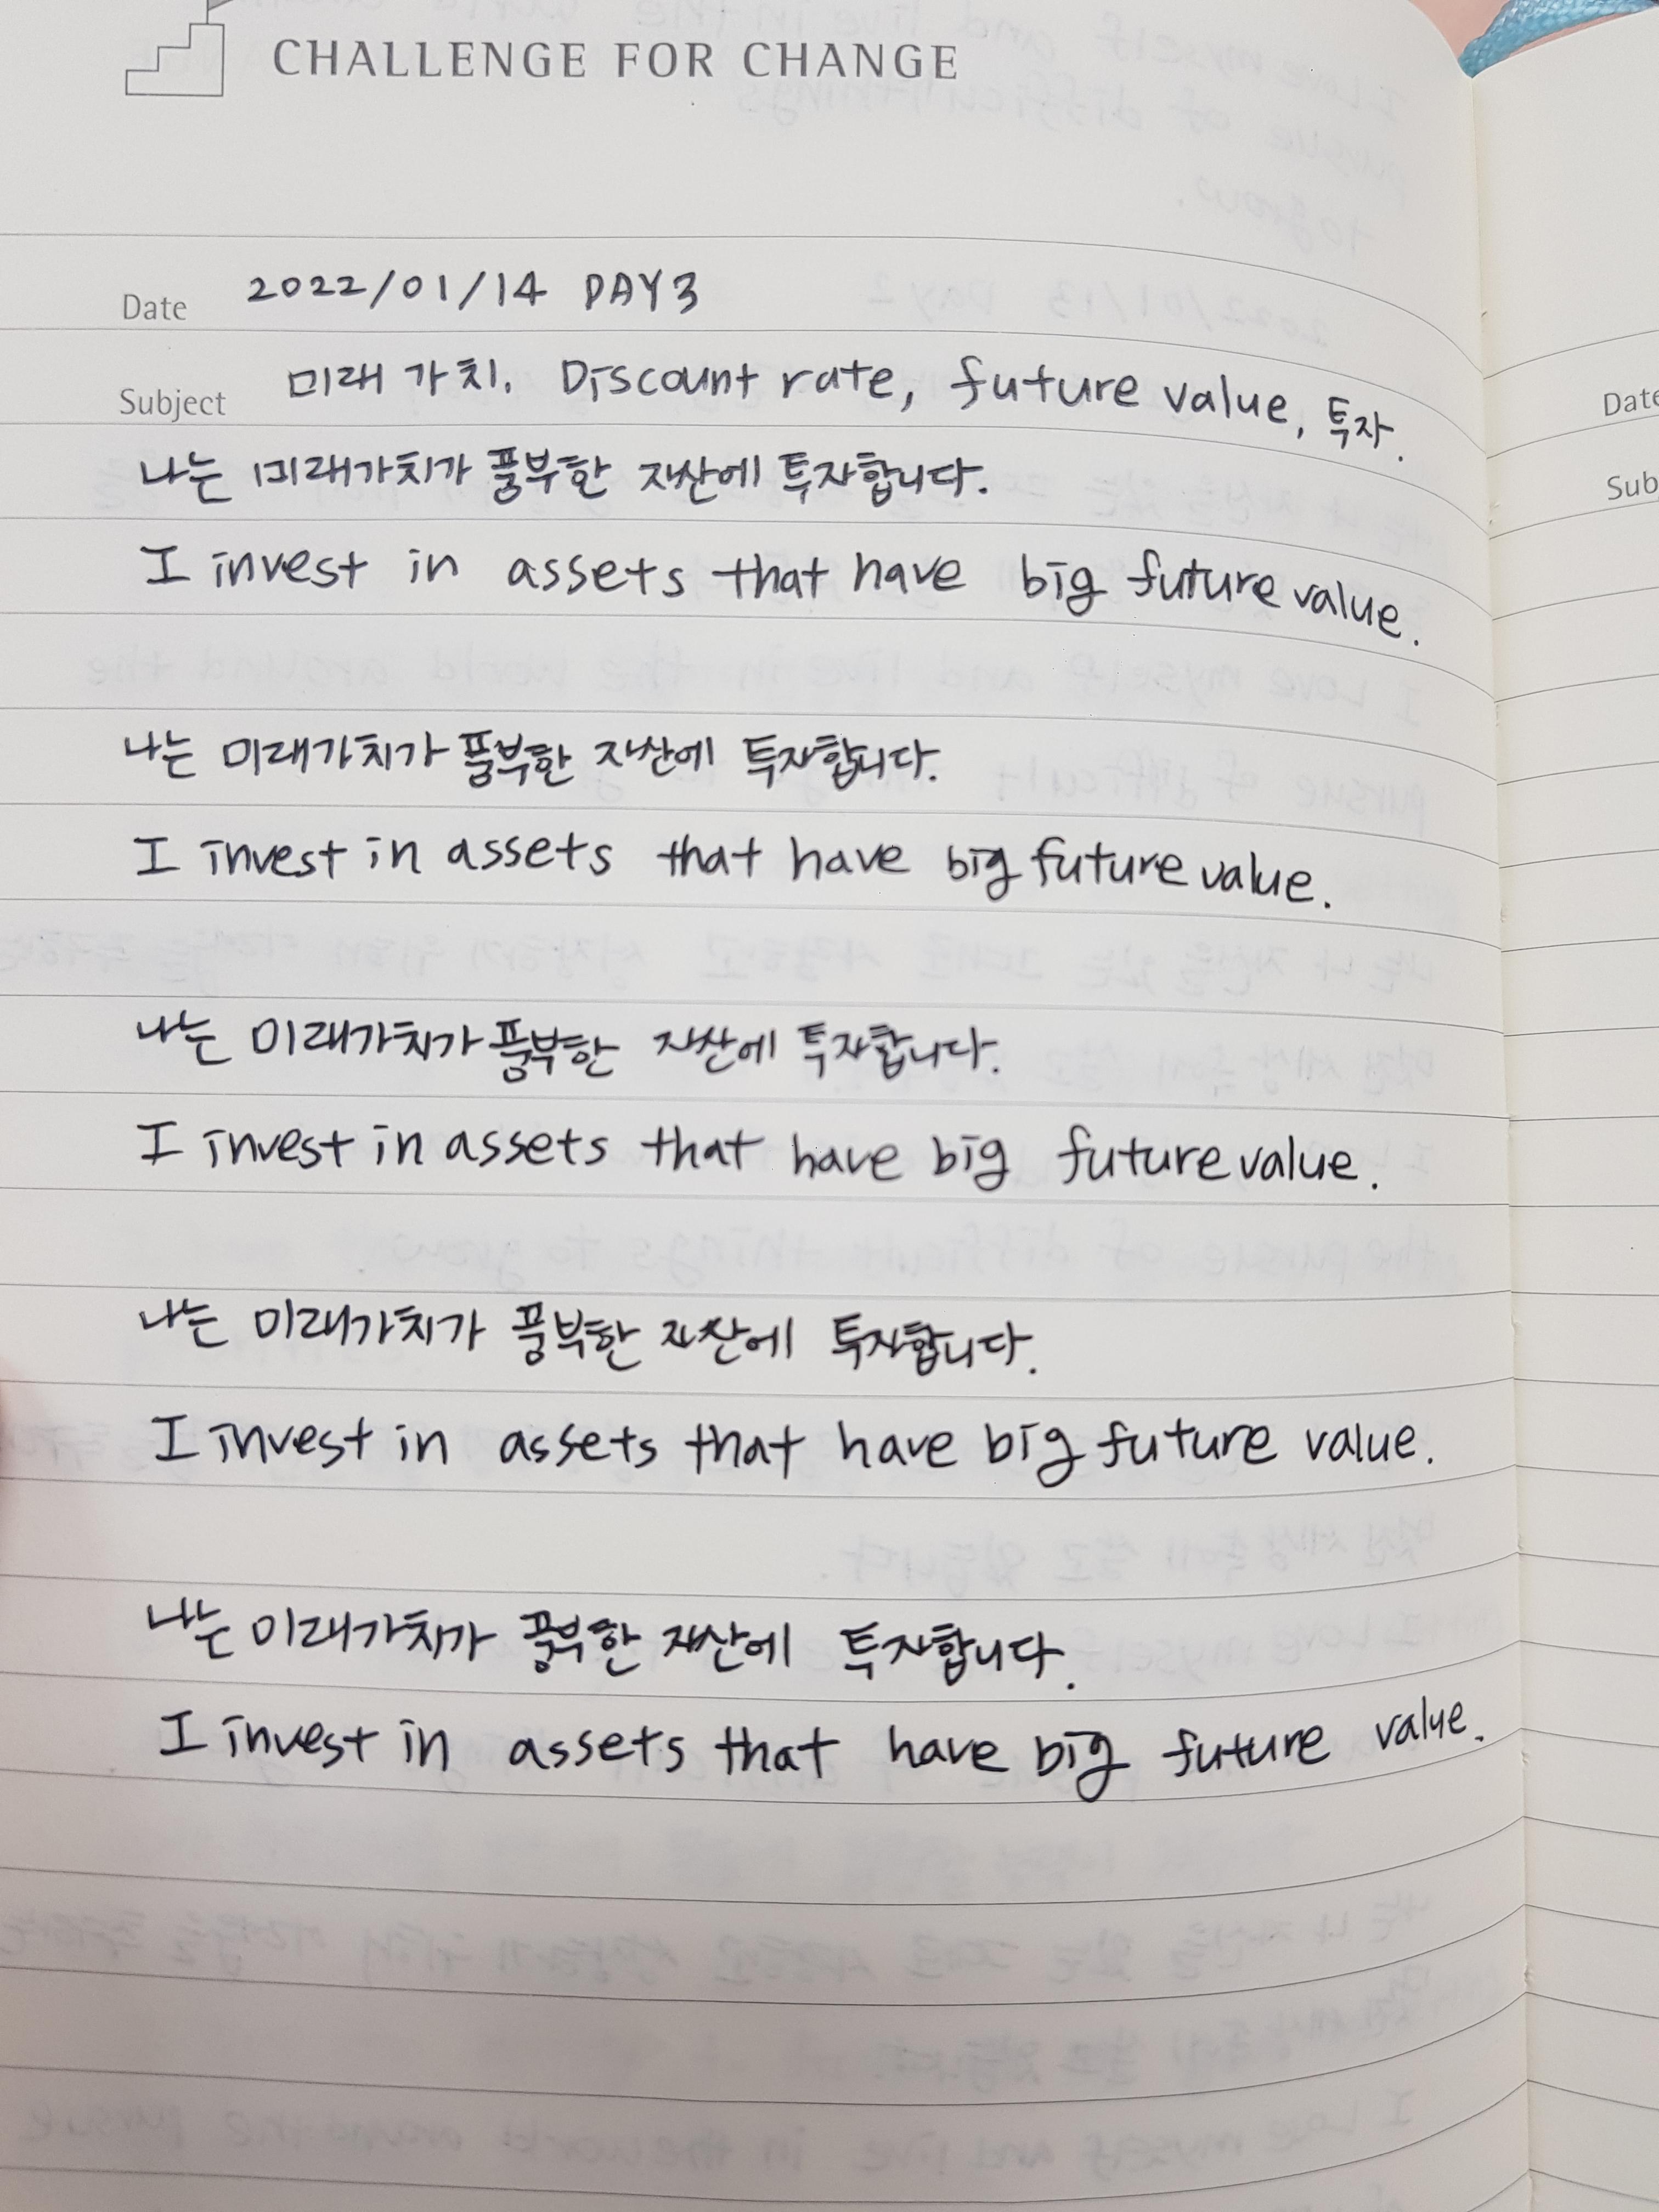 CHALLENGE FOR CHANGE
Date 2022/01/14 DAY3
Subject 미래 가치. Discount rate, future value, 투자.
나는 미래가치가 풍부한 자산에 투자합니다.
I invest in assets that have big future value.
나는 미래가치가 풍부한 자산에 투자합니다.
I invest in assets that have big future value.
나는 미래가치가 풍부한 자산에 투자합니다.
I invest in assets that have big future value.
나는 미래가치가 풍부한 자산에 투자합니다.
I invest in assets that have big future value.
나는 미래가치가 풍부한 자산에 투자합니다.
I invest in assets that have big future value.
Date
Sub